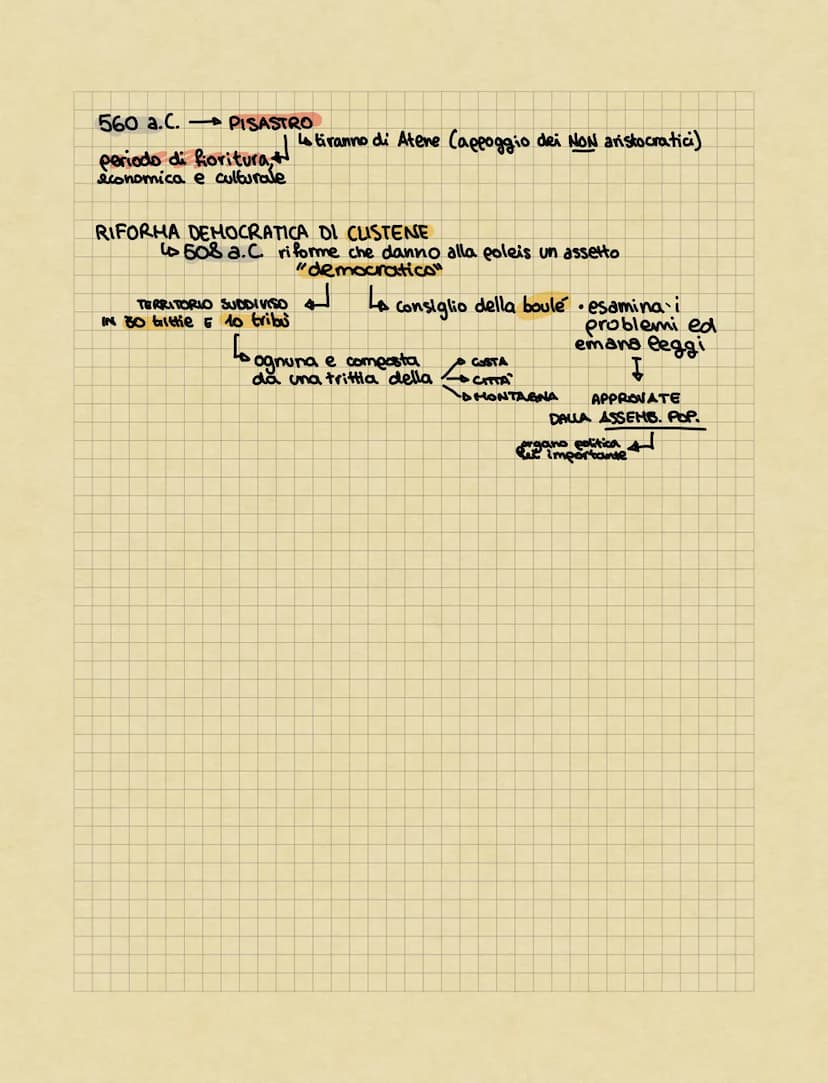 560 a.C. → PISASTRO
↳ tiranno di Atene (appoggio dei NON aristocratici)
periodo di fioritura
economica e culturale
RIFORMA DEMOCRATICA DI CLISTENE
↳ 508 a.C. riforme che danno alla poleis un assetto
"democratico"
TERRITORIO SUDDIVISO
IN 30 trittie E 10 tribù
↳ consiglio della boulé • esamina i
problemi ed
emana leggi
↳ ognuna e composta
da una trittia della
→ COSTA
→ CITTA'
→ MONTAGNA
APPROVATE
DALLA ASSEMB. POP.
organo politica
più importante